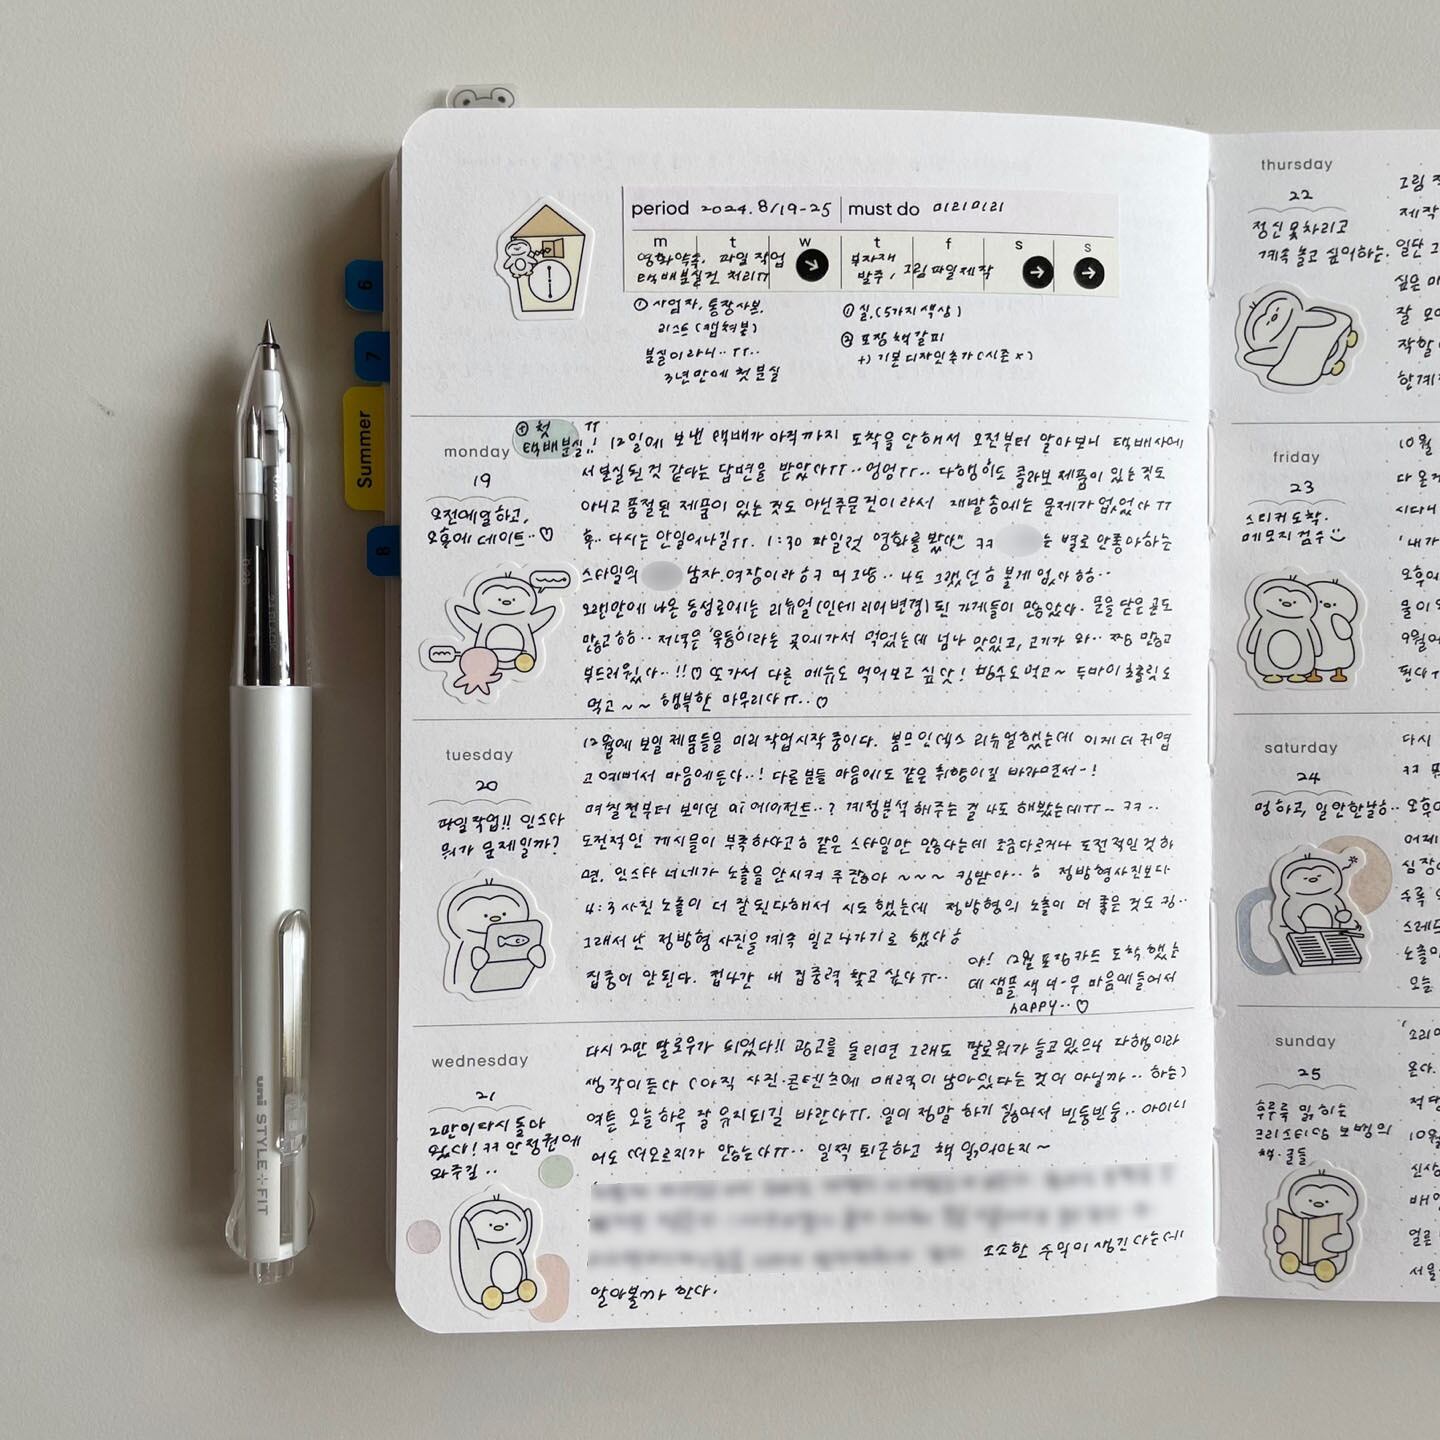 period 2024. 8/19-25 must do 미리미리
m t w t f s s
영화약속, 파일 작업
택배분실건 처리ㅠ
부자재
발주, 그림파일제작
① 사업자, 통장사본,
리스트 (캡쳐본)
분실이라니..ㅠㅠ..
3년만에 첫 분실
① 실.(5가지 색상)
② 포장 책갈피
+) 기본 디자인 추가 (시즌 x)
monday
19
오전에 일하고,
오후에 데이트..♡
① 첫
택배분실!! ㅠ
12일에 보낸 택배가 아직까지 도착을 안해서 오전부터 알아보니 택배사에
서 분실된 것 같다는 답변을 받았다ㅠ..엉엉ㅠ.. 다행히도 콜라보 제품이 있는 것도
아니고 품절된 제품이 있는 것도 아닌 주문건이라서 재발송에는 문제가 없었다 ㅠ
휴.. 다시는 안일어나길ㅠ. 1:30 파일럿 영화를 봤다" ㅋㅋ 는 별로 안좋아하는
스타일의 남자.여장이라 ㅎㅋ 머 그냥.. 나도 그랬던 ㅎ 볼게 없다 ㅎㅎ..
오랜만에 나온 동성로에는 리뉴얼(인테리어변경)된 가게들이 많았다. 문을 닫은 곳도
많고 ㅎㅎ.. 저녁은 이라는 곳에 가서 먹었는데 넘나 맛있고, 고기가 와.. 짱 많고
부드러웠다..!!♡ 또 가서 다른 메뉴도 먹어보고 싶닷! 빙수도 먹고~ 두바이 초콜릿도
먹고~~ 행복한 마무리다ㅠ..♡
tuesday
20
파일작업!! 인스타
뭐가 문제일까?
12월에 보일 제품들을 미리 작업시작 중이다. 봄므인덱스 리뉴얼했는데 이게 더 귀엽
고 예뻐서 마음에든다..! 다른분들 마음에도 같은 취향이길 바라면서-!
며칠전부터 보이던 ai 에이전트..? 계정분석 해주는 걸 나도 해봤는데ㅠ~ ㅋㅋ..
도전적인 게시물이 부족하다고ㅎ 같은 스타일만 많다는데 조금다르거나 도전적인 것 하
면, 인스타 너네가 노출을 안시켜 주잖아~~~ 킹받아..ㅎ 정방형사진보다
4:3 사진 노출이 더 잘된다해서 시도했는데 정방형의 노출이 더 좋은 것도 킹..
그래서 난 정방형 사진을 계속 밀고 나가기로 했다ㅎ
집중이 안된다. 집나간 내 집중력 찾고 싶다ㅠ..
아! 12월 포장카드 도착했는
데 샘플 색 너-무 마음에들어서
happy..♡
wednesday
21
2만이 다시 돌아
왔다! ㅋㅋ 안정권에
와주길..
다시 2만 팔로우가 되었다!! 광고를 돌리면 그래도 팔로워가 늘고 있으니 다행이라
생각이 든다 (아직 사진·콘텐츠에 매력이 남아있다는 것이 아닐까.. 하는)
여튼 오늘 하루 잘 유지되길 바란다ㅠ. 일이 정말 하기 싫어서 빈둥빈둥.. 아이디
어도 떠오르지가 않는다ㅠ.. 일찍 퇴근하고 책 읽어야지~
소소한 수익이 생긴다는데
알아볼까 한다.
thursday
22
정신 못차리고
계속 놀고 싶어하는.
그림
제작
일단
싶은
잘 모
작할
한계
friday
23
스티커 도착.
메모지 검수
10월
다
시다
'내가
오후에
물이
9월
편다
saturday
24
멍하고, 일 안한날ㅎ..
다시
ㅋㅋ
오후
어제
심장
수록
스레드
노출이
오늘
sunday
25
후루룩 읽히는
크리스티앙 보뱅의
책·글들
온다.
적당
10월
신상
배
얼른
서울
6
7
Summer
8
uni STYLE+FIT